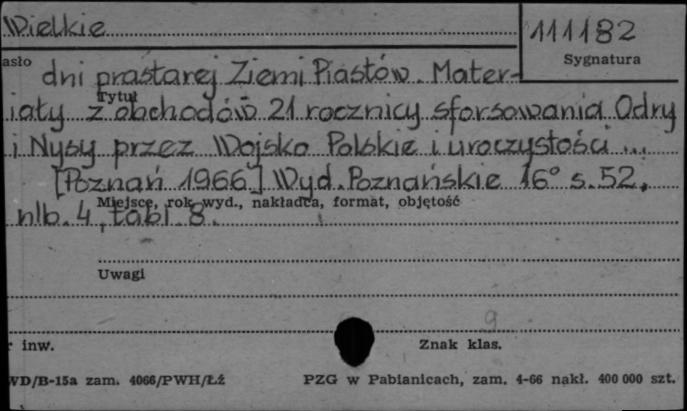 Wielkie
111182
asło
Sygnatura
dni prastarej Ziemi Piastów. Mater-
Tytuł
iały z obchodów 21 rocznicy sforsowania Odry
i Nysy przez Wojsko Polskie i uroczystości ...
[Poznań 1966] Wyd. Poznańskie 16° s. 52,
Miejsce, rok wyd., nakładca, format, objętość
nlb. 4, tabl. 8.
Uwagi
9
r inw.
Znak klas.
WD/B-15a zam. 4066/PWH/Łź
PZG w Pabianicach, zam. 4-66 nakł. 400 000 szt.